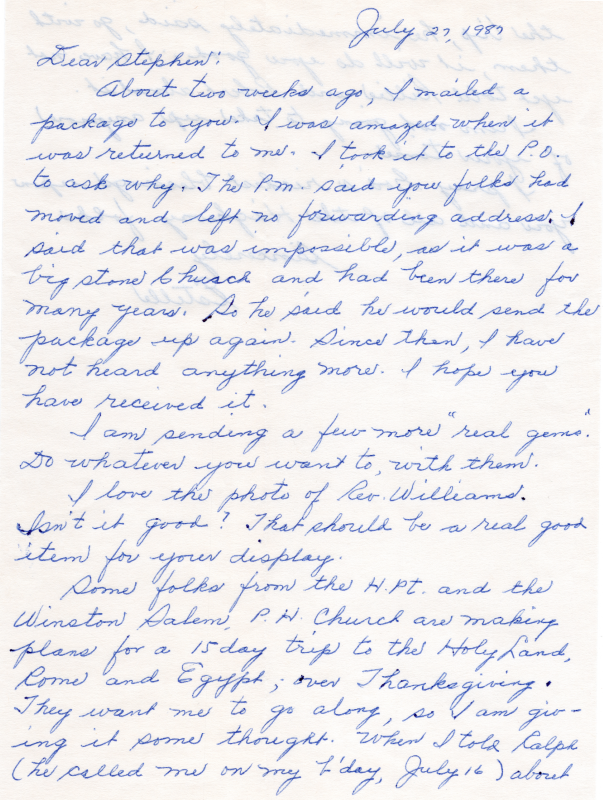 July 27, 1987
Dear Stephen:
About two weeks ago, I mailed a
package to you. I was amazed when it
was returned to me. I took it to the P.O.
to ask why. The P.M. said you folks had
moved and left no forwarding address. I
said that was impossible, as it was a
big stone Church and had been there for
many years. So he said he would send the
package up again. Since then, I have
not heard anything more. I hope you
have received it.
I am sending a few more "real gems".
Do whatever you want to, with them.
I love the photo of Rev. Williams.
Isn't it good? That should be a real good
item for your display.
Some folks from the H.Pt. and the
Winston Salem, P.H. Church are making
plans for a 15 day trip to the Holy Land,
Rome and Egypt; over Thanksgiving.
They want me to go along, so I am giv-
ing it some thought. When I told Ralph
(he called me on my b'day, July 16) about